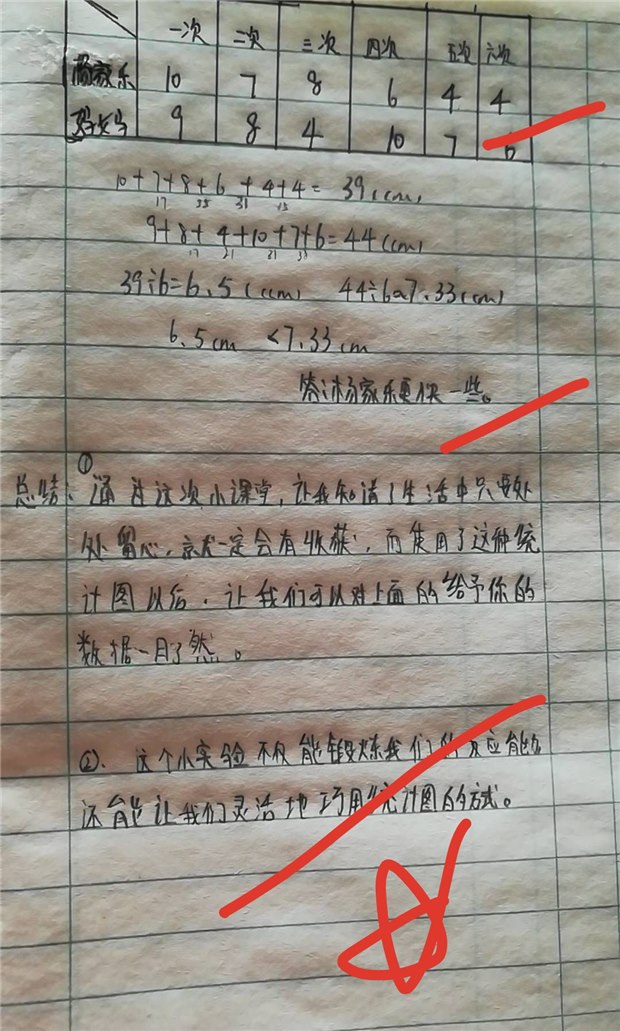 一次 二次 三次 四次 五次 六次
杨家乐 10 7 8 6 4 4
9 8 4 10 7 6
10+7+8+6+4+4= 39(cm)
17 31
9+8+4+10+7+6=44(cm)
17 21 31 38
39÷6=6.5(cm) 44÷6≈7.33(cm)
6.5cm <7.33cm
答:杨家乐更快一些。
①
总结:通过这次小课堂,让我知道了生活中只要处
处留心,就一定会有收获,而使用了这种统
计图以后,让我们可以对上面的给予你的
数据一目了然。
②、这个小实验不仅能锻炼我们的反应能力
还能让我们灵活地巧用统计图的方式。